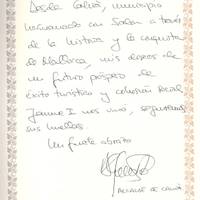 Desde Calvià, municipio
hermanado con Salou a través
de la historia y la conquista
de Mallorca, mis deseos de
un futuro próspero de
éxito turístico y cohesión social
Jaume I nos unió, seguiremos
sus huellas.
Un fuerte abrazo
ALCALDE DE CALVIÀ